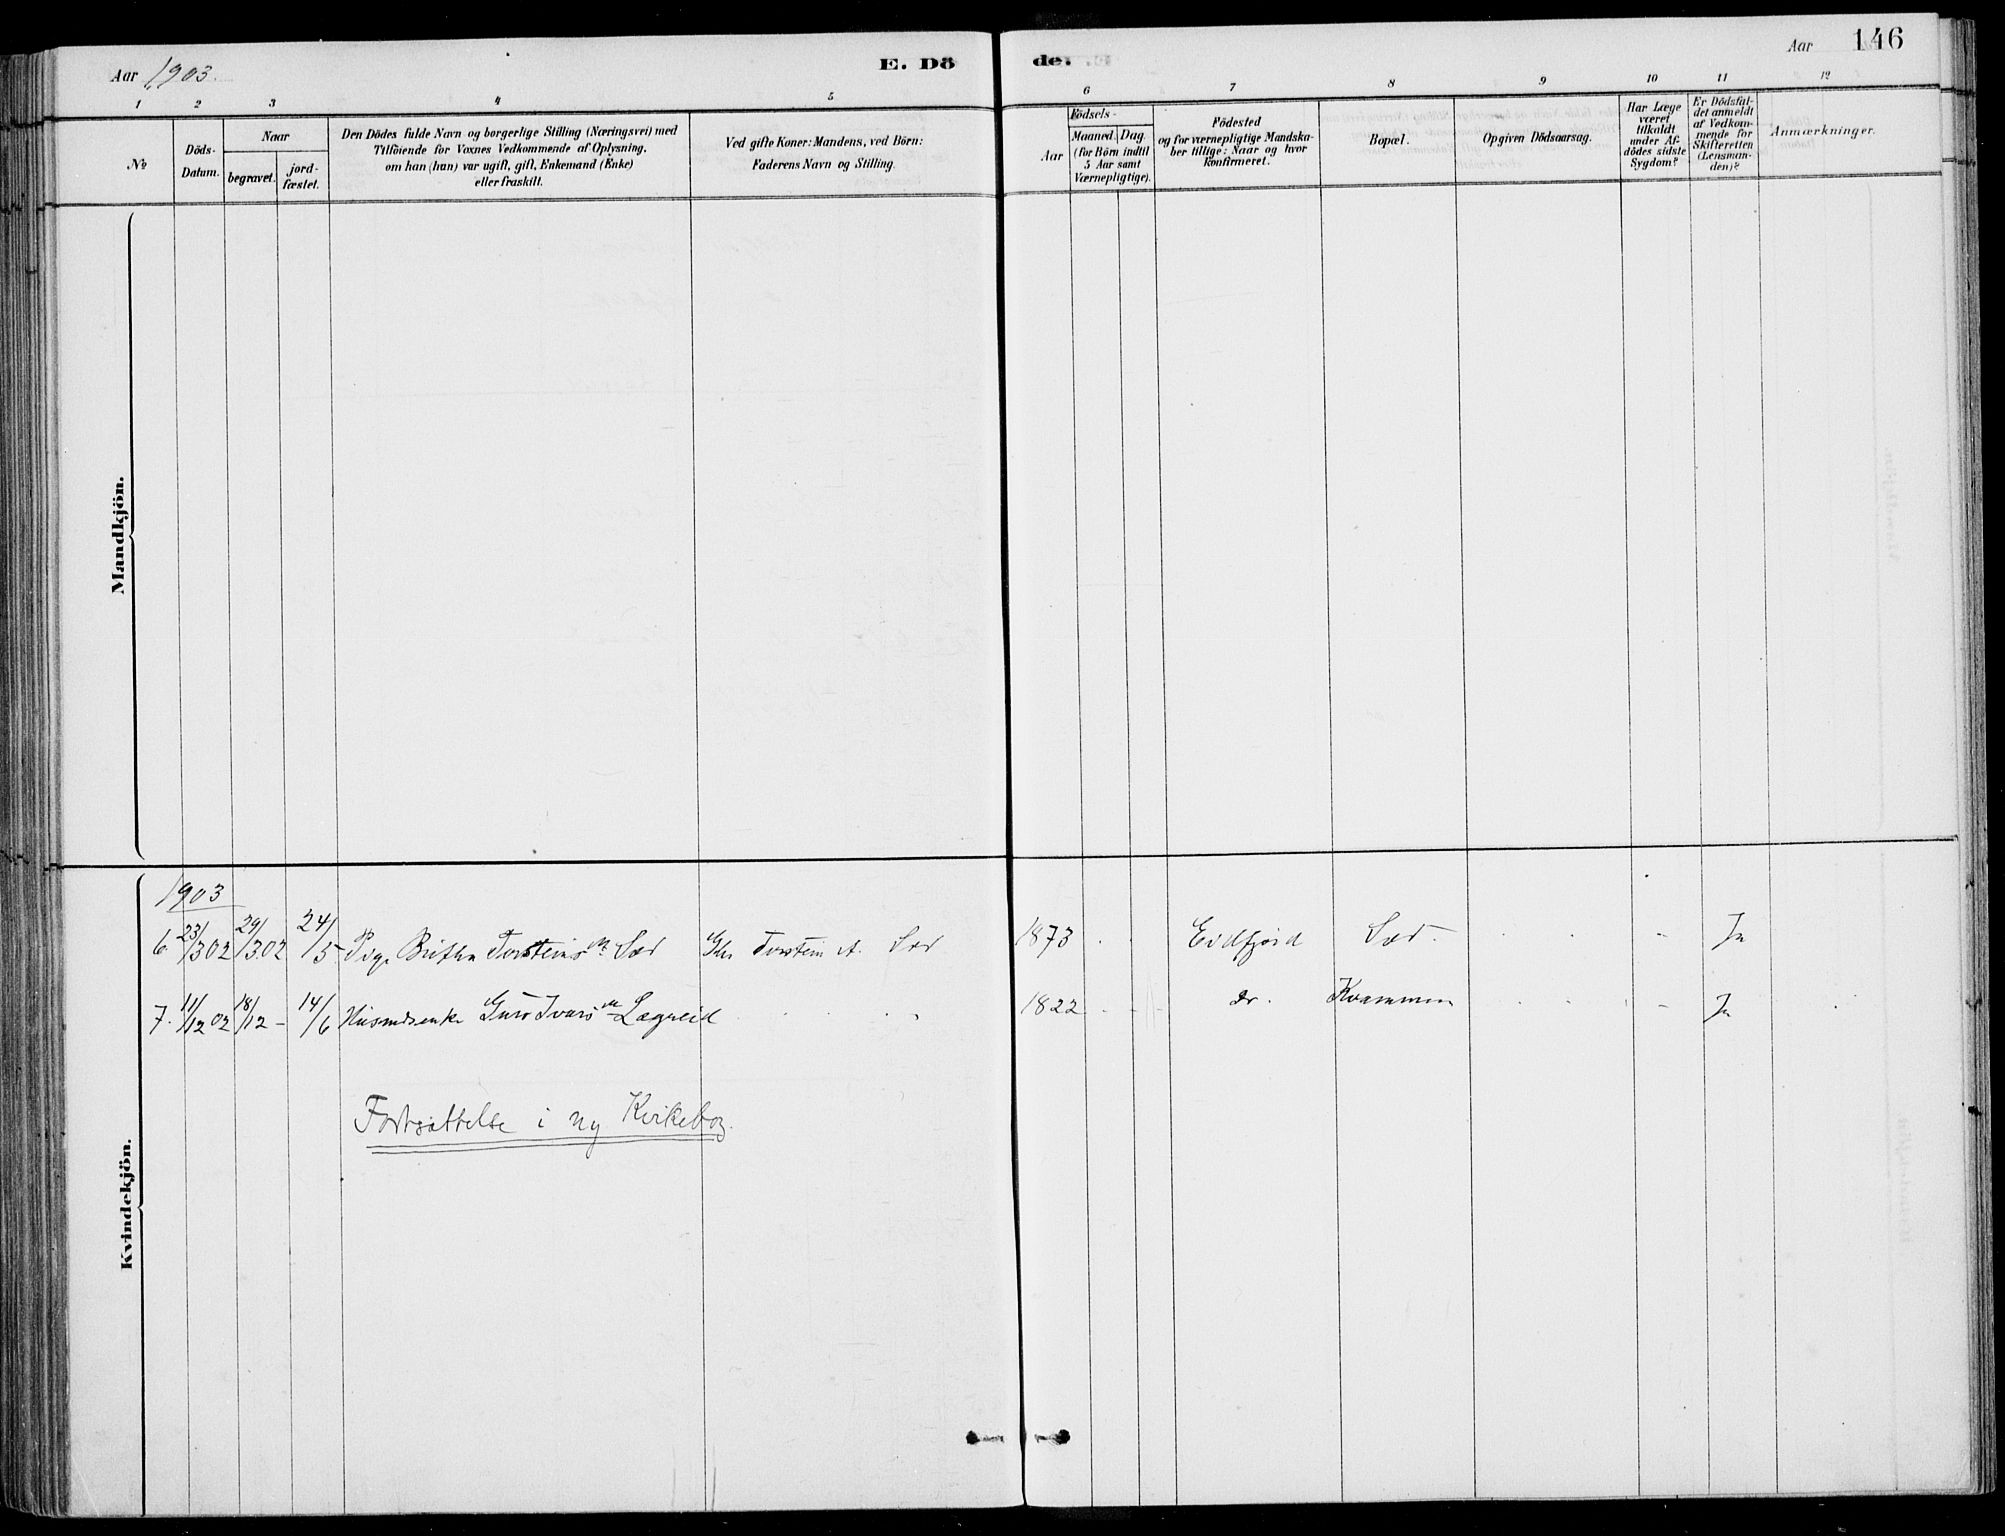 Aar 1903.
E. Dö
de.
Aar
146
1 2 3 4 5
6 7 8 9 10 11 12
No
Döds-
Datum.
Naar
begravet.
jord-
fæstet.
Den Dödes fulde Navn og borgerlige Stilling (Næringsvei) med
Tilföiende for Voxnes Vedkommende af Oplysning,
om han (hun) var ugift, gift, Enkemand (Enke)
eller fraskilt.
Ved gifte Koner: Mandens, ved Börn:
Faderens Navn og Stilling.
Födsels-
Aar
Maaned. Dag.
(for Börn indtil
5 Aar samt
Værnepligtige).
Födested
og for værnepligtige Mandska-
ber tillige: Naar og hvor
konfirmeret.
Bopæl.
Opgiven Dödsaarsag.
Har Læge
været
tilkaldt
under Af-
dödes sidste
Sygdom?
Er Dödsfal-
det anmeldt
af Vedkom-
mende for
Skifteretten
(Lensman-
den)?
Anmærkninger.
Mandkjön.
Kvindekjön.
1903
6 23/3 02 29/3 02 24/5 Pige Britha Torsteinsdr Sæd Torstein A. Sæd 1873 Eidfjord Sæd. - Ja
7. 11/12 02 18/12 - 14/6 Husmdsenke Guro Ivarsdr Lægreid 1822 do. Kvammen - Ja
Fortsættelse i ny Kirkebog.